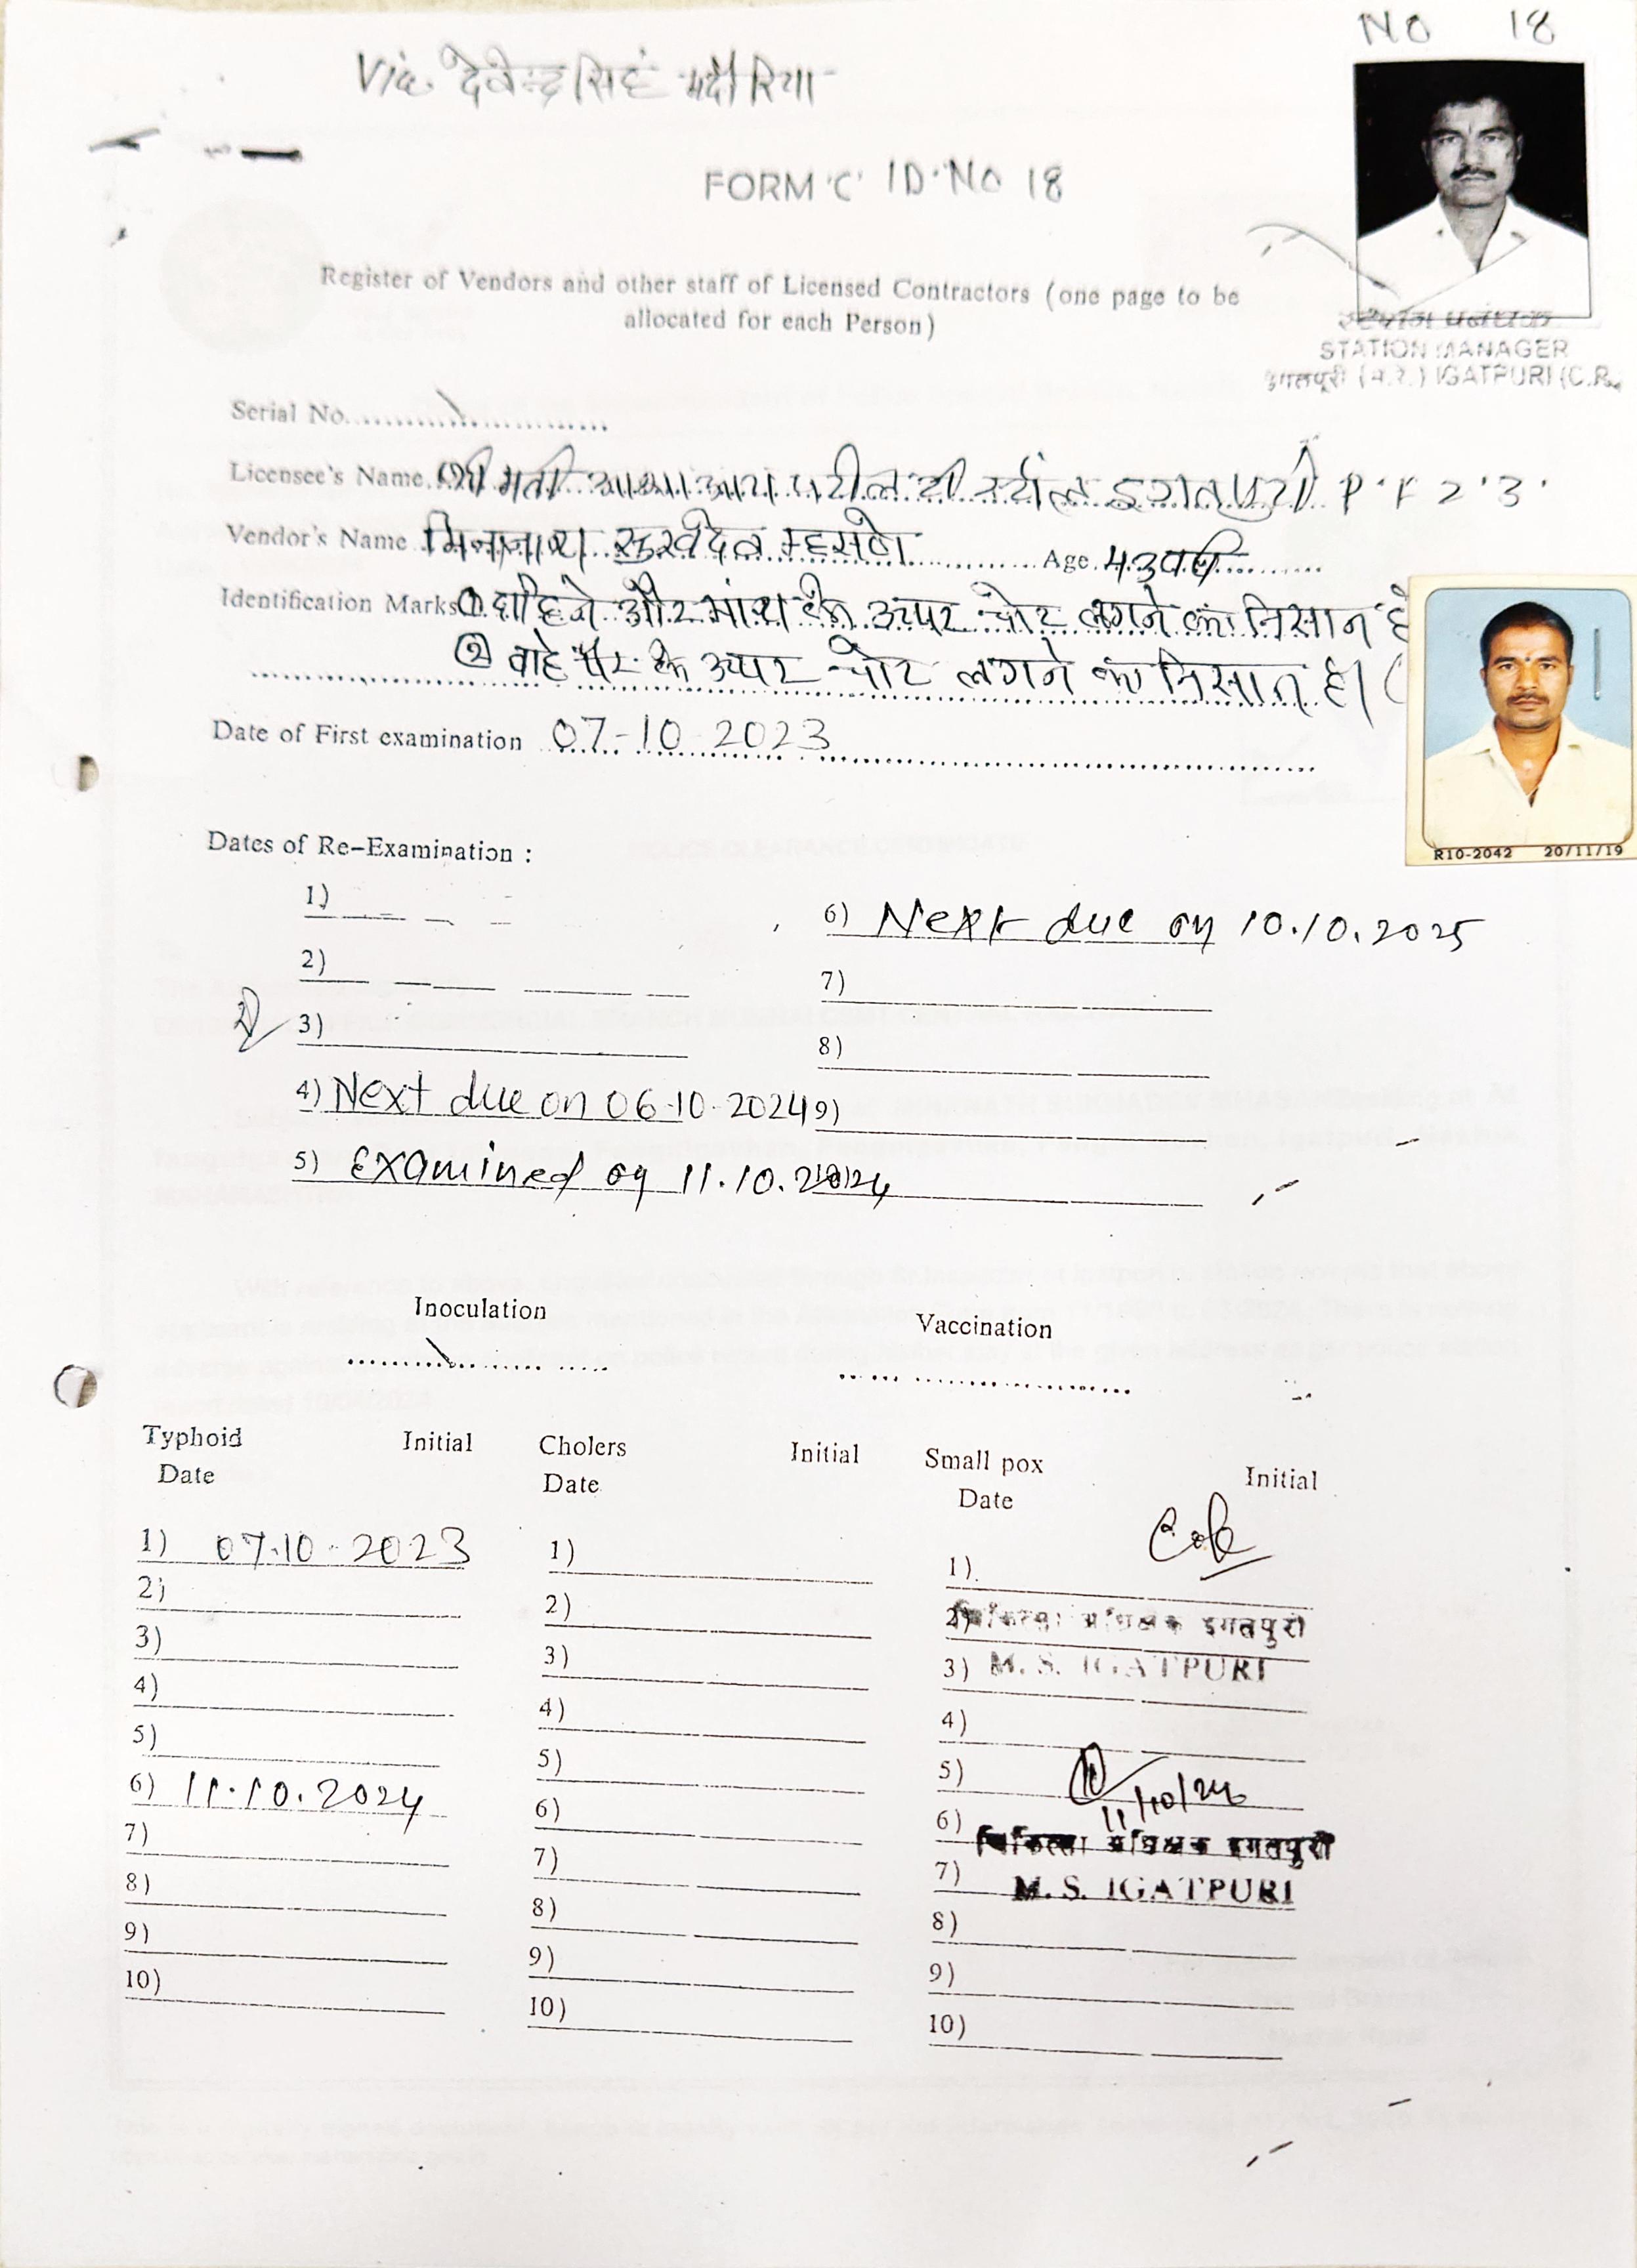 No 18
Via. देवेन्द्रसिंह भदौरिया
FORM 'C' ID.No 18
Register of Vendors and other staff of Licensed Contractors (one page to be
allocated for each Person)
स्टेशन प्रबंधक
STATION MANAGER
इगतपुरी (म.रे.) IGATPURI (C.R.
Serial No.
Licensee's Name श्रीमती आशा आय पटील टी स्टॉल इगतपुरी P.F 2'3'
Vendor's Name सुखदेव म्हसणे Age 43 वर्ष
Identification Marks ① दाहिने और के उपर चोट लगने का निसान है
② पैर के उपर चोट लगने का निसान है।
Date of First examination 07-10-2023
R10-2042 20/11/19
Dates of Re-Examination :
1)
6) Next due on 10.10.2025
2)
7)
3)
8)
4) Next due on 06.10.2024 9)
5) Examined on 11.10.2024
Inoculation Vaccination
Typhoid Initial Cholers Initial Small pox Initial
Date Date Date
1) 07.10-2023 1) 1)
2) 2) 2) चिकित्सा अधिक्षक इगतपुरी
3) 3) 3) M. S. IGATPURI
4) 4) 4)
5) 5) 5)
11/10/24
6) 11.10.2024 6) 6) चिकित्सा अधिक्षक इगतपुरी
7) 7) 7) M. S. IGATPURI
8) 8) 8)
9) 9) 9)
10) 10) 10)